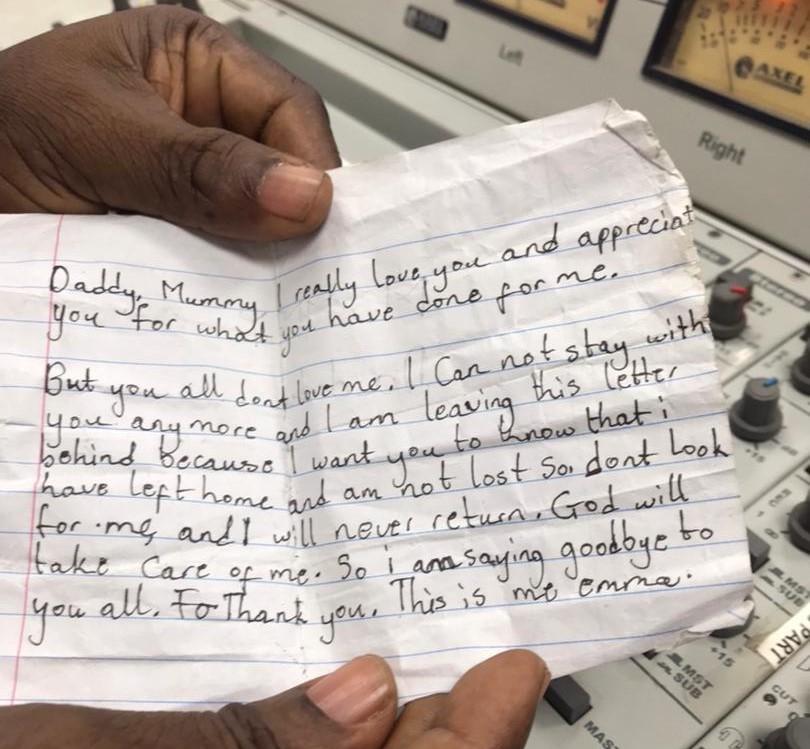 Left
AXEL
Right
Daddy, Mummy, I really love you and appreciat
you for what you have done for me.
But you all dont love me. I Can not stay with
you anymore and I am leaving this letter
behind because I want you to know that i
have left home and am not lost so, dont look
for me, and I will never return. God will
take care of me. So i am saying goodbye to
you all. Fo Thank you. This is me emma.
+15
MST
SUB
PART
+15
MST
SUB
CUT
MAS